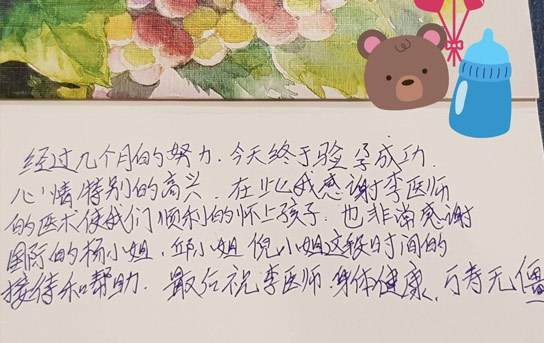 经过几个月的努力.今天终于验孕成功.
心情特别的高兴.在此我感谢李医师
的医术使我们顺利的怀上孩子.也非常感谢
国际的杨小姐.邱小姐 倪小姐这段时间的
接待和帮助.最后祝李医师.身体健康.万寿无僵